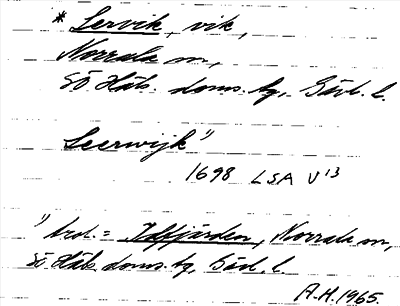 * Lervik, vik,
Norrala sn,
Sö. Häls. doms. hg, Gävl. l.
Leerwijk 1)
1698 LSA U 13
1) trol. = , Norrala sn,
Sö. Häls. doms. hg, Gävl. l.
A.H. 1965.